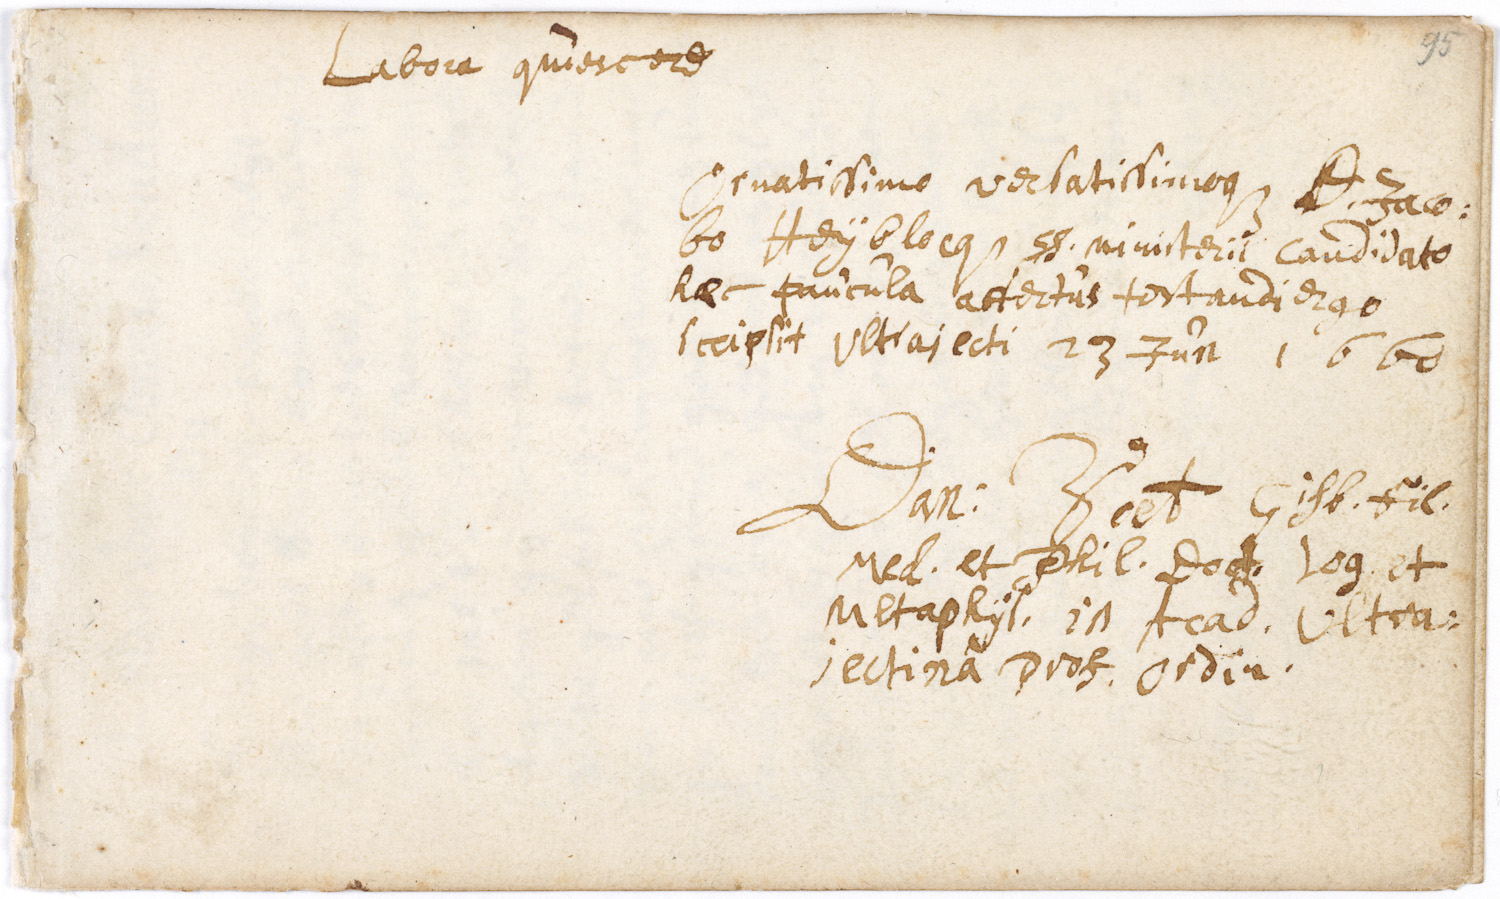 95
Labora quiescere
Ornatissimo versatissimoq; D. Jaco:
bo Heyblocq, SS. ministerii candidato
haec paucula affectus testandi ergo
scripsit Ultrajecti 23 Jun 1660
Dan: Voet Gisb. fil.
Med. et Phil. Doct. Log. et
Metaphys. in Acad. Ultra:
jectinâ prof. ordin.